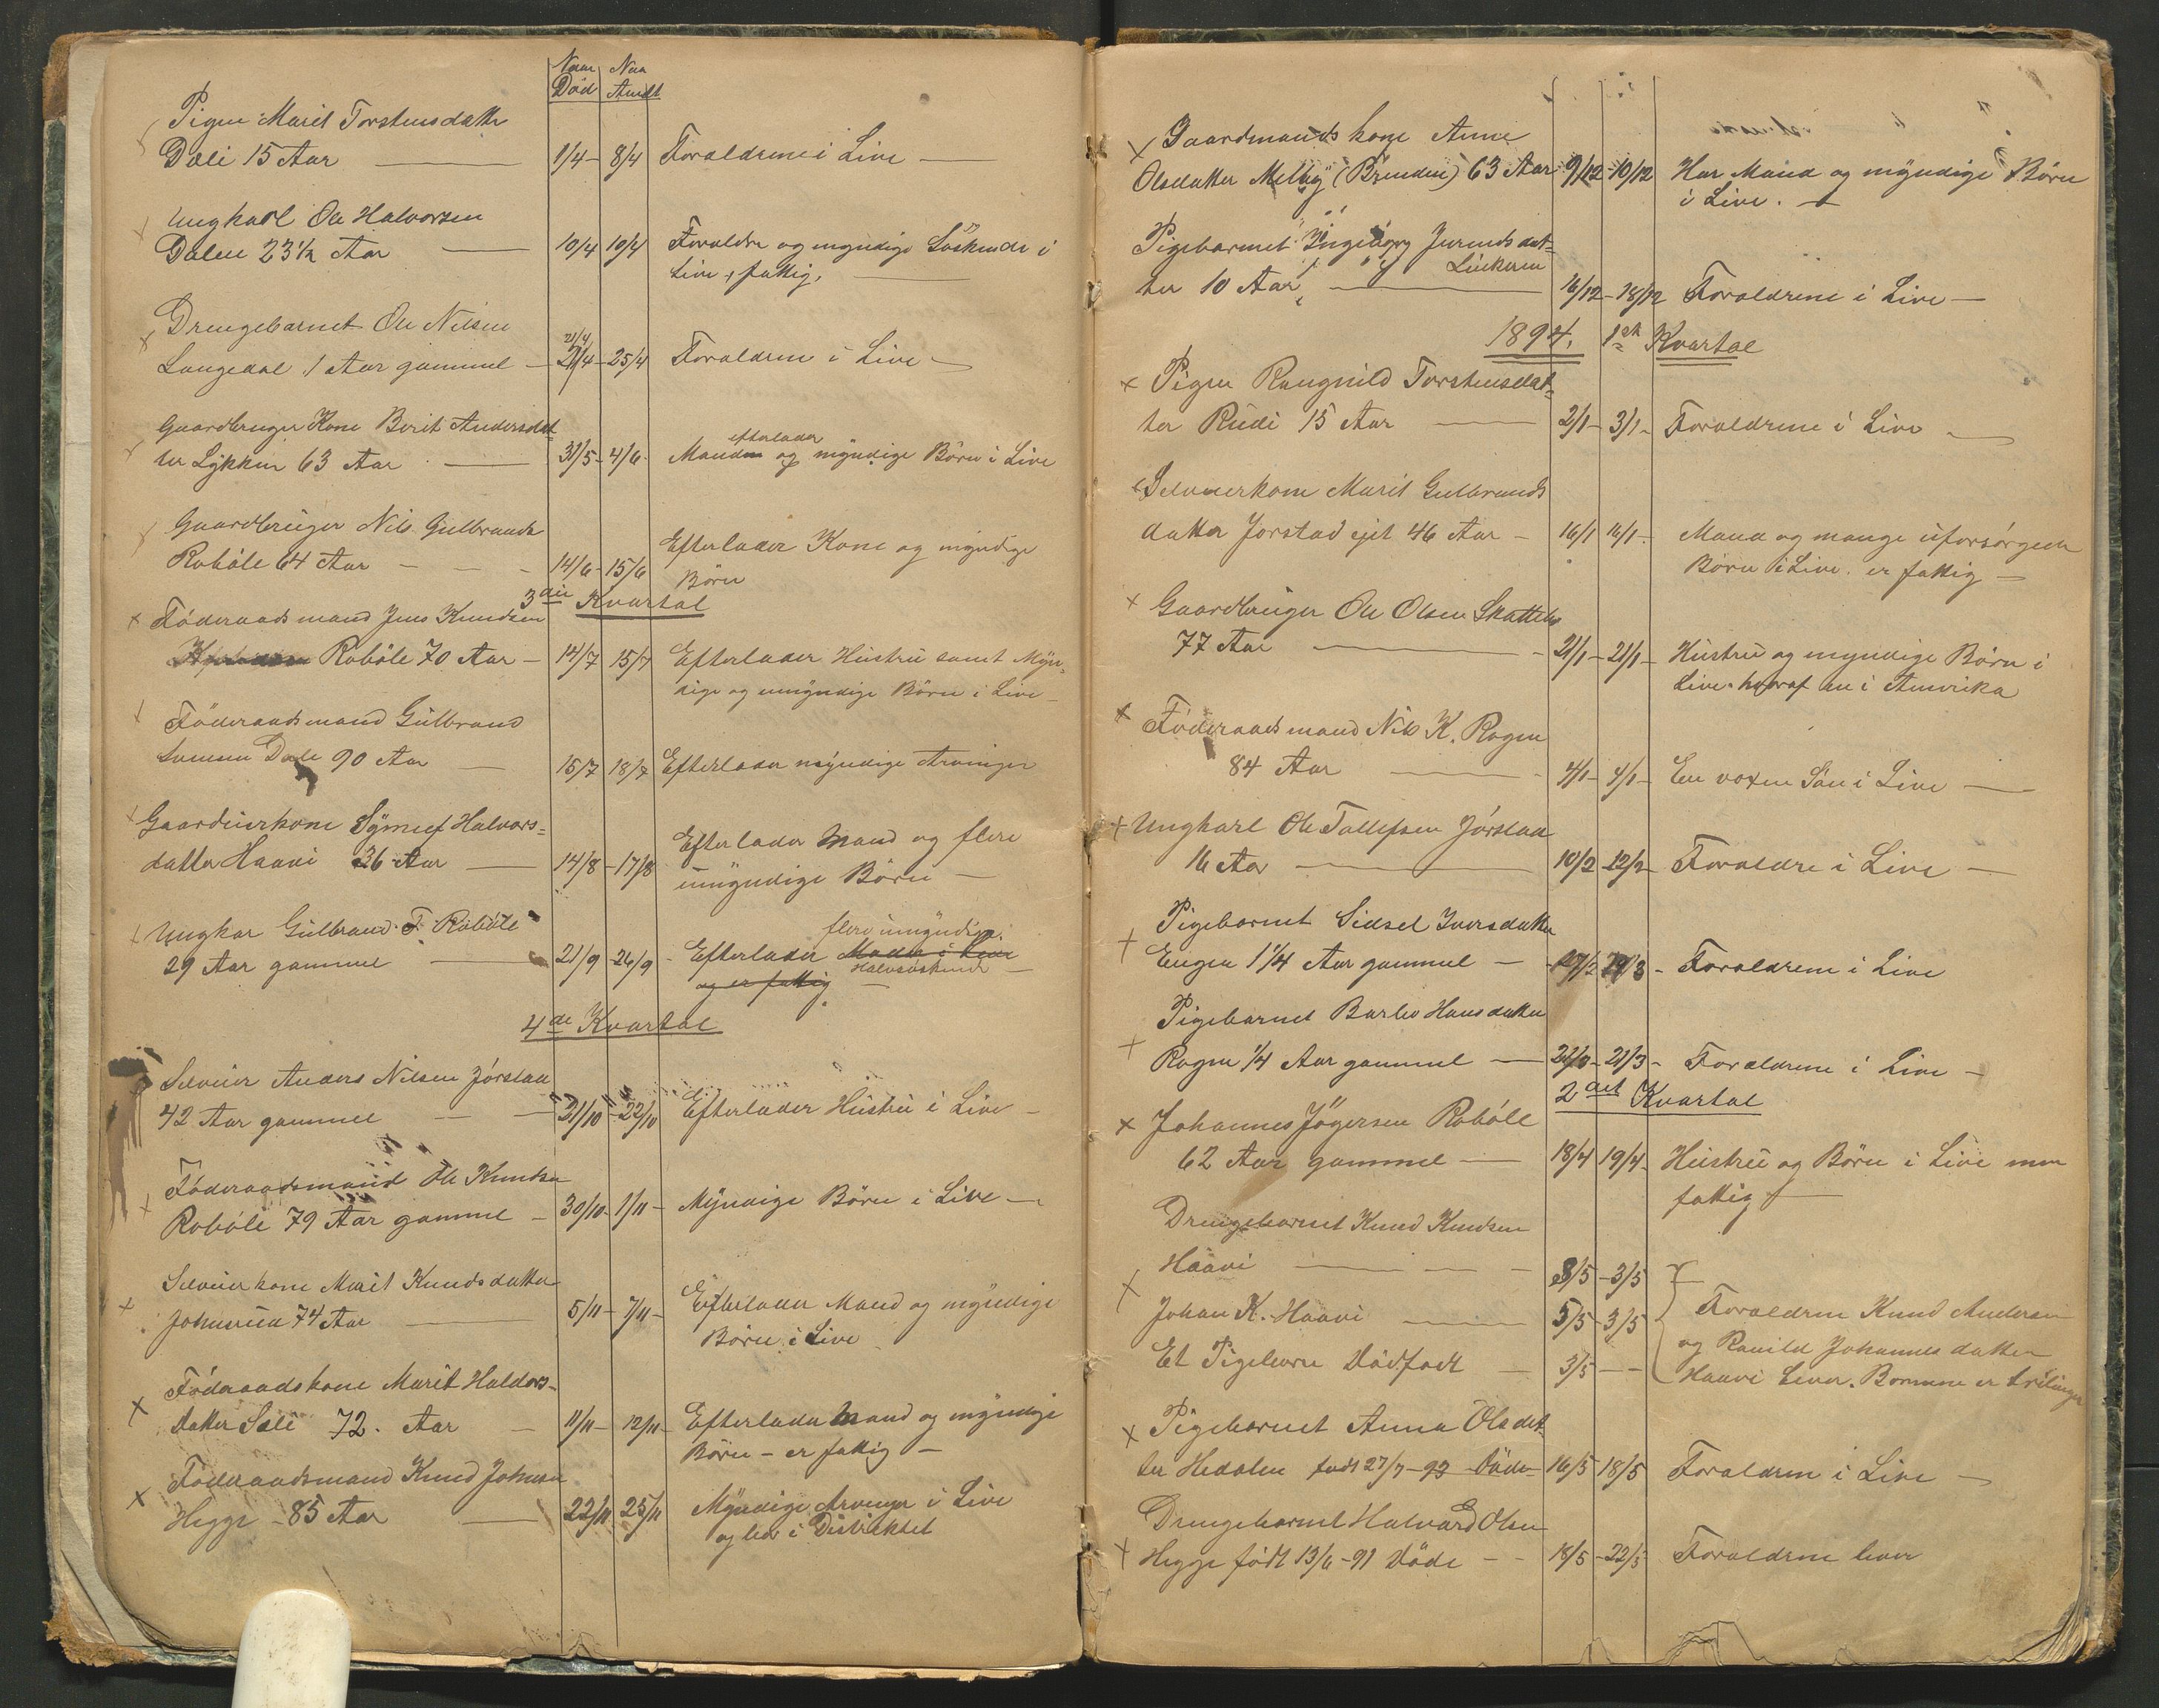 Naar Naa
Död Anmdt
Pigen Marit Torstensdatter
Dæli 15 Aar 1/4 - 8/4 Forældrene i Live
Ungkarl Ole Halvorsen
Dalen 23½ Aar 10/4 19/4 Forældre og myndige Söskende i
Live, fattig.
Drengebarnet Ole Nilsen
21/4
Langedal 1 Aar gammel - 21/4 - 25/4 Forældrene i Live
Gaardbruger Kone Berit Andersdat-
efterlader
ter Lykken 63 Aar 31/5 - 4/6 Manden og myndige Börn i Live
Gaardbruger Nils Gulbrands
Efterlader Kone og myndige
Robóle 64 Aar - - - 14/6 - 15/6 Börn
3die Kvartal
Föderaadsmand Jens Knudsen
Robóle 70 Aar - 14/7 15/7 Efterlader Hustru samt Myn-
dige og umyndige Börn i Live
Föderaadsmand Gulbrand
Dale 90 Aar 15/7 18/7 Efterlader myndige Arvinger
Gaardeierkone Symief Halvors-
Efterlader Mand og flere
datter Haavi 36 Aar 14/8 - 17/8 umyndige Börn -
Ungkar Gulbrand T. Robóle
flere umyndige
29 Aar gammel 21/9 - 26/9 - Efterlader Moder i Live
Halvsöskende
og er fattig
4de Kvartal
Selveier Anders Nilsen Jórstad
42 Aar gammel 21/10 - 22/10 Efterlader Hustru i Live -
Föderaadsmand Ole Knudsen
Robóle 79 Aar gammel - 30/10 - 1/11 - Myndige Börn i Live
Selveierkone Marit Knudsdatter
74 Aar 5/11 - 7/11 - Efterlader Mand og myndige
Börn i Live
Föderaadskone Marit Haldors-
datter Sæli 72. Aar - 11/11 - 12/11 - Efterlader Mand og myndige
Börn - er fattig -
Föderaadsmand Knud Johnsen
Hegge - 85 Aar 22/11 25/11 Myndige Arvinger i Live
og lever i Distriktet
Gaardmandskone Anne
Olsdatter Melby (Brenden) 63 Aar 9/12 - 10/12 Har Mand og myndige Börn
i Live.
Pigebarnet Ingeborg Jurundsdat-
Liekeren
ter 10 Aar 16/12 - 18/12 Forældrene i Live -
1894. 1ste Kvartal
Pigen Rangnild Torstensdat-
ter Rudi 15 Aar 2/1 - 3/1 - Forældrene i Live
Selveierkone Marit Gulbrands
datter Jorstad ejet 46 Aar - 16/1 16/1 - Mand og mange uforsórgede
Börn i Live. er fattig -
Gaardbruger Ole Olsen Skattebo
77 Aar 21/1 - 21/1 - Hustru og myndige Börn i
Live. hvoraf en i Amerika
Föderaadsmand Nils K. Rogne
84 Aar 4/1 - 4/1 - En voxen Sön i Live
Ungkarl Ole Tollefsen Jórstad
16 Aar 10/2 12/2 Forældre i Live -
Pigebarnet Sidsel Iversdatter
Engen 1¼ Aar gammel - 27/2 - Forældrene i Live
Pigebarnet Barbo Hansdatter
Rogne ¼ Aar gammel 21/3 - 21/3 - Forældrene i Live -
2det Kvartal
Johannes Jógersen Robóle
62 Aar gammel 18/4 19/4 - Hustru og Börn i Live men
fattig
Drengebarnet Knud Knudsen
Haavi 3/5 - 3/5
Johan K. Haavi 5/5 - 3/5 Forældrene Knud Andersen
og Ranild Johannesdatter
Et Pigebarn Dödfödt - 3/5 - -
Haavi Lever. Bornene er trilinger
Pigebarnet Anna Olsdat-
ter Hedalen födt 27/7 - 93 Döde 16/5 18/5 Forældrene i Live
Drengebarnet Halvard Olsen
Hegge födt 13/6 - 91 Döde - - 18/5 - 22/5 Forældrene lever